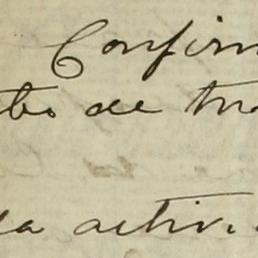 Confirm
tes de tra
la activi